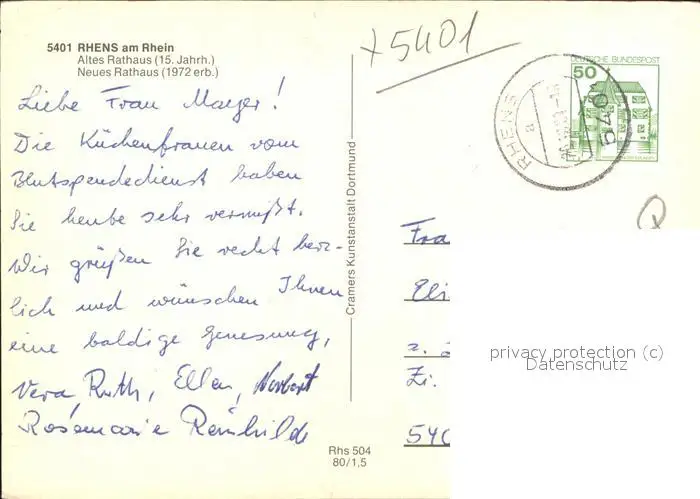 5401 RHENS am Rhein
Altes Rathaus (15. Jahrh.)
Neues Rathaus (1972 erb.)
Liebe Frau Mayer!
Die Küchenfrauen vom
Blutspendedienst haben
Sie heute sehr vermißt.
Wir grüßen Sie recht herz-
lich und wünschen Ihnen
eine baldige Genesung,
Vera, Ruth, Ellen, Norbert
Rosemarie Reinhilde
Cramers Kunstanstalt Dortmund
Rhs 504
80/1,5
5401
DEUTSCHE BUNDESPOST
50
RHENS
a
5401
Fra
Eli
z. Z
Zi.
540
privacy protection (c)
Datenschutz